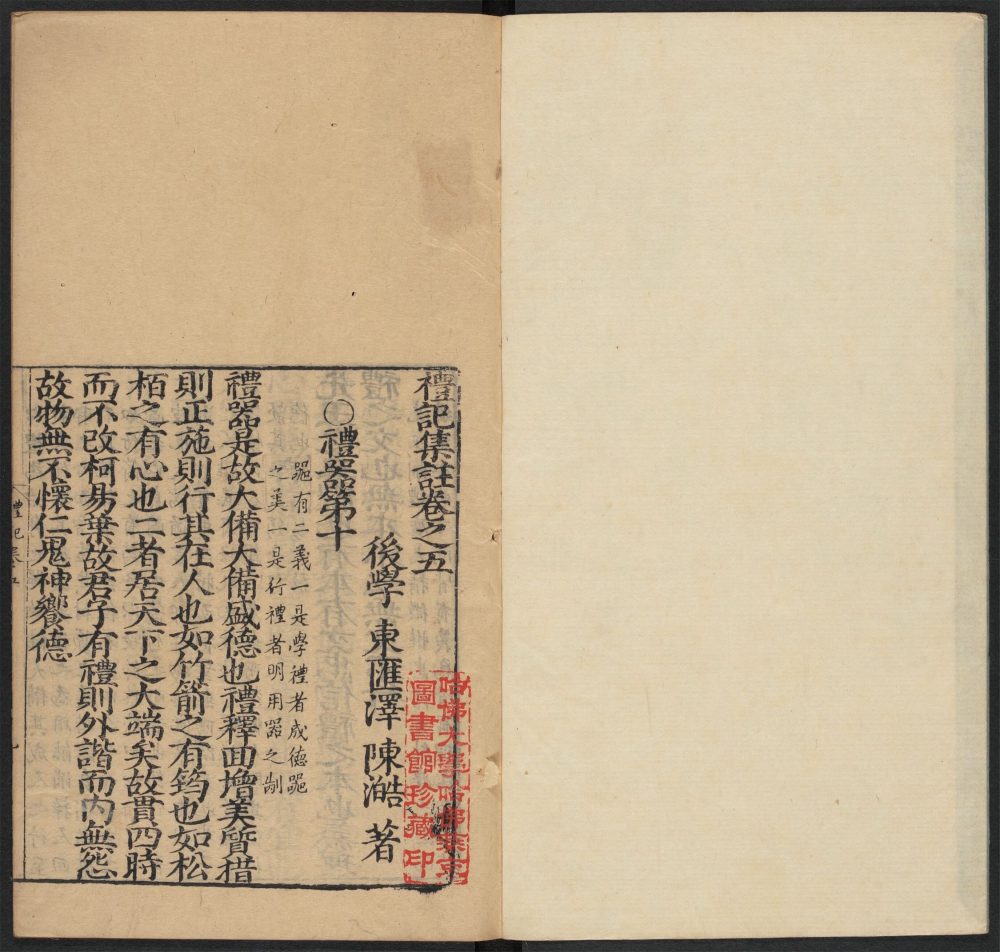 禮記集註卷之五
後學東匯澤陳澔著
○禮器第十
器有二義一是學禮者成德器
之美一是行禮者明用器之制
禮器是故大備大備盛德也禮釋回增美質措
則正施則行其在人也如竹箭之有筠也如松
栢之有心也二者居天下之大端矣故貫四時
而不改柯易葉故君子有禮則外諧而內無怨
故物無不懷仁鬼神饗德
哈佛大學哈佛燕京
圖書館珍藏印